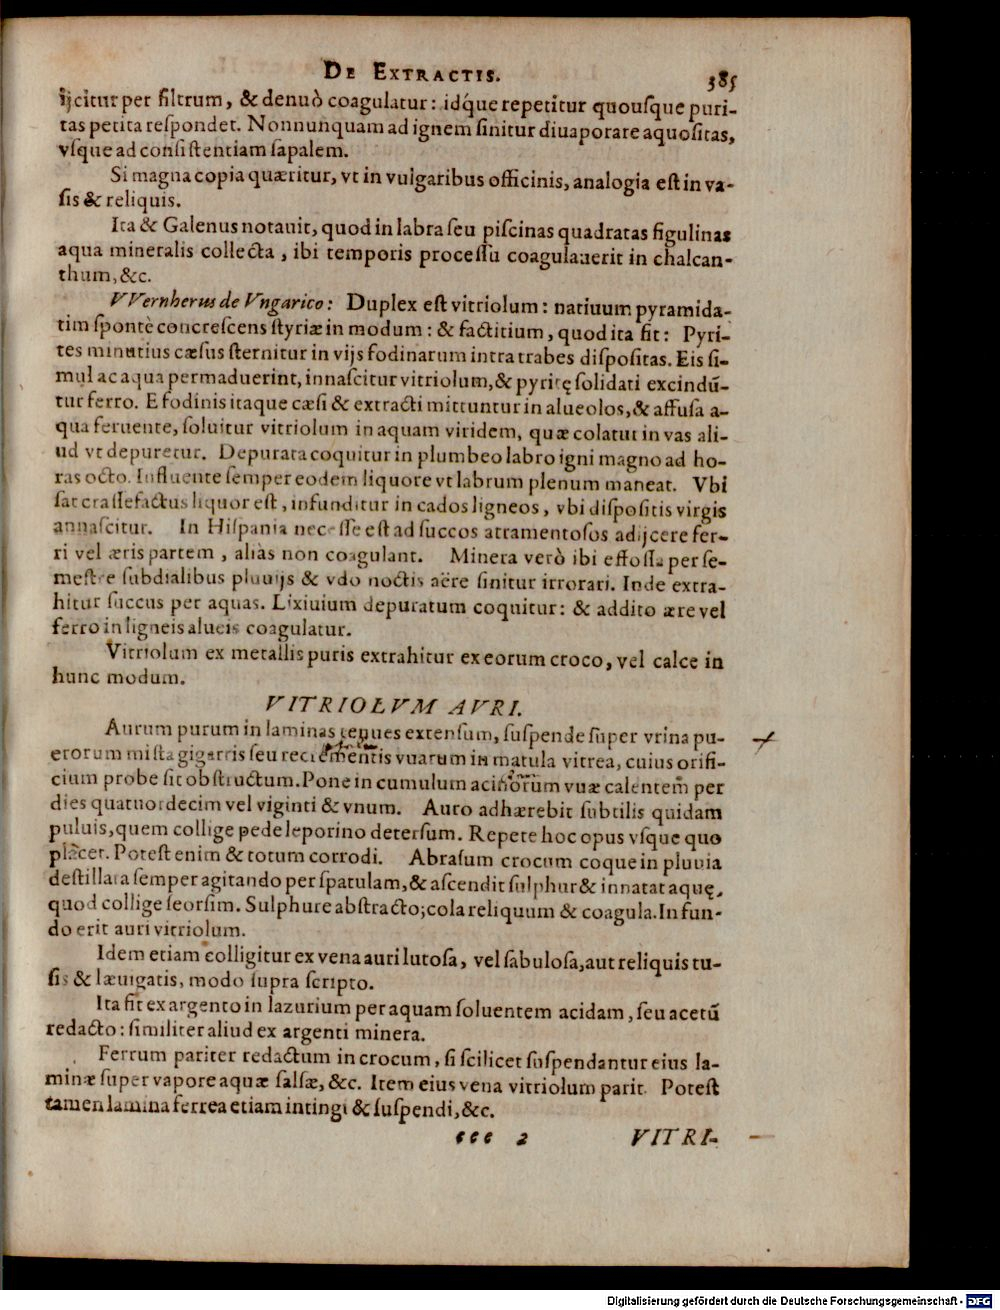 DE EXTRACTIS. 385
ijcitur per filtrum, & denuò coagulatur: idq́ue repetitur quouſque puri-
tas petita reſpondet. Nonnunquam ad ignem ſinitur diuaporare aquoſitas,
vſque ad conſiſtentiam ſapalem.
Si magna copia quæritur, vt in vulgaribus officinis, analogia eſt in va-
ſis & reliquis.
Ita & Galenus notauit, quod in labra ſeu piſcinas quadratas figulinas
aqua mineralis collecta, ibi temporis proceſſu coagulauerit in chalcan-
thum, &c.
VVernherus de Vngarico: Duplex eſt vitriolum: natiuum pyramida-
tim ſpontè concreſcens ſtyriæ in modum: & factitium, quod ita fit: Pyri-
tes minutius cæſus ſternitur in vijs fodinarum intra trabes diſpoſitas. Eis ſi-
mul ac aqua permaduerint, innaſcitur vitriolum, & pyritę ſolidati excindū-
tur ferro. E fodinis itaque cæſi & extracti mittuntur in alueolos, & affuſa a-
qua feruente, ſoluitur vitriolum in aquam viridem, quæ colatur in vas ali-
ud vt depuretur. Depurata coquitur in plumbeo labro igni magno ad ho-
ras octo. Influente ſemper eodem liquore vt labrum plenum maneat. Vbi
ſat craſſefactus liquor eſt, infunditur in cados ligneos, vbi diſpoſitis virgis
annaſcitur. In Hiſpania neceſſe eſt ad ſuccos atramentoſos adijcere fer-
ri vel æris partem, aliàs non coagulant. Minera verò ibi effoſſa per ſe-
meſtre ſubdialibus pluuijs & vdo noctis aëre ſinitur irrorari. Inde extra-
hitur ſuccus per aquas. Lixiuium depuratum coquitur: & addito ære vel
ferro in ligneis alueis coagulatur.
Vitriolum ex metallis puris extrahitur ex eorum croco, vel calce in
hunc modum.
VITRIOLVM AVRI.
Aurum purum in laminas tenues extenſum, ſuſpende ſuper vrina pu-
erorum miſta gigarris ſeu recrementis vuarum in matula vitrea, cuius orifi-
cium probe ſit obſtructum. Pone in cumulum acinorum vuæ calentem per
dies quatuordecim vel viginti & vnum. Auro adhærebit ſubtilis quidam
puluis, quem collige pede leporino deterſum. Repete hoc opus vſque quo
placet. Poteſt enim & totum corrodi. Abraſum crocum coque in pluuia
deſtillata ſemper agitando per ſpatulam, & aſcendit ſulphur & innatat aquę,
quod collige ſeorſim. Sulphure abſtracto; cola reliquum & coagula. In fun-
do erit auri vitriolum.
Idem etiam colligitur ex vena auri lutoſa, vel ſabuloſa, aut reliquis tu-
ſis & læuigatis, modo ſupra ſcripto.
Ita fit ex argento in lazurium per aquam ſoluentem acidam, ſeu acetū
redacto: ſimiliter aliud ex argenti minera.
Ferrum pariter redactum in crocum, ſi ſcilicet ſuſpendantur eius la-
minæ ſuper vapore aquæ ſalſæ, &c. Item eius vena vitriolum parit. Poteſt
tamen lamina ferrea etiam intingi & ſuſpendi, &c.
ccc 2 VITRI-
Digitalisierung gefördert durch die Deutsche Forschungsgemeinschaft - DFG